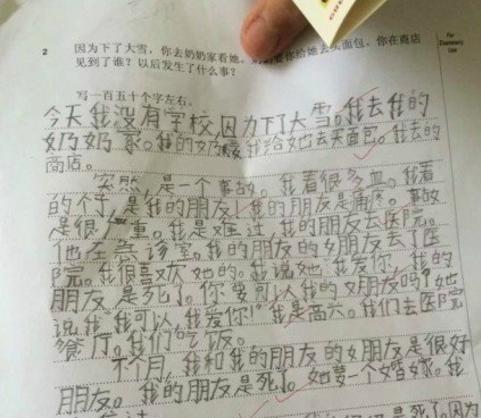 2 因为下了大雪，你去奶奶家看她。奶奶要你给她去买面包，你在商店
见到了谁？以后发生了什么事？
写一百五十个字左右。
今天我没有学校，因为下了大雪。我去我的
奶奶家。我的奶奶要我给她去买面包。我去的
商店。
突然，是一个事故。我看很多血。我看
的个车，是我的朋友！我的朋友是痛疼。事故
是很严重。我是难过，我的朋友去医院。
他在急诊室。我的朋友的女朋友去了医
院。我很喜欢她的。我说她“我爱你，我的
朋友是死了。你要可以我的女朋友吗？”她
说我“我可以，我爱你！”我是高兴。我们去医院
餐厅。我们吃饭。
个月，我和我的朋友的女朋友是很好
朋友。我的朋友是死了。她要一个婚嫁。我
是死了。因为